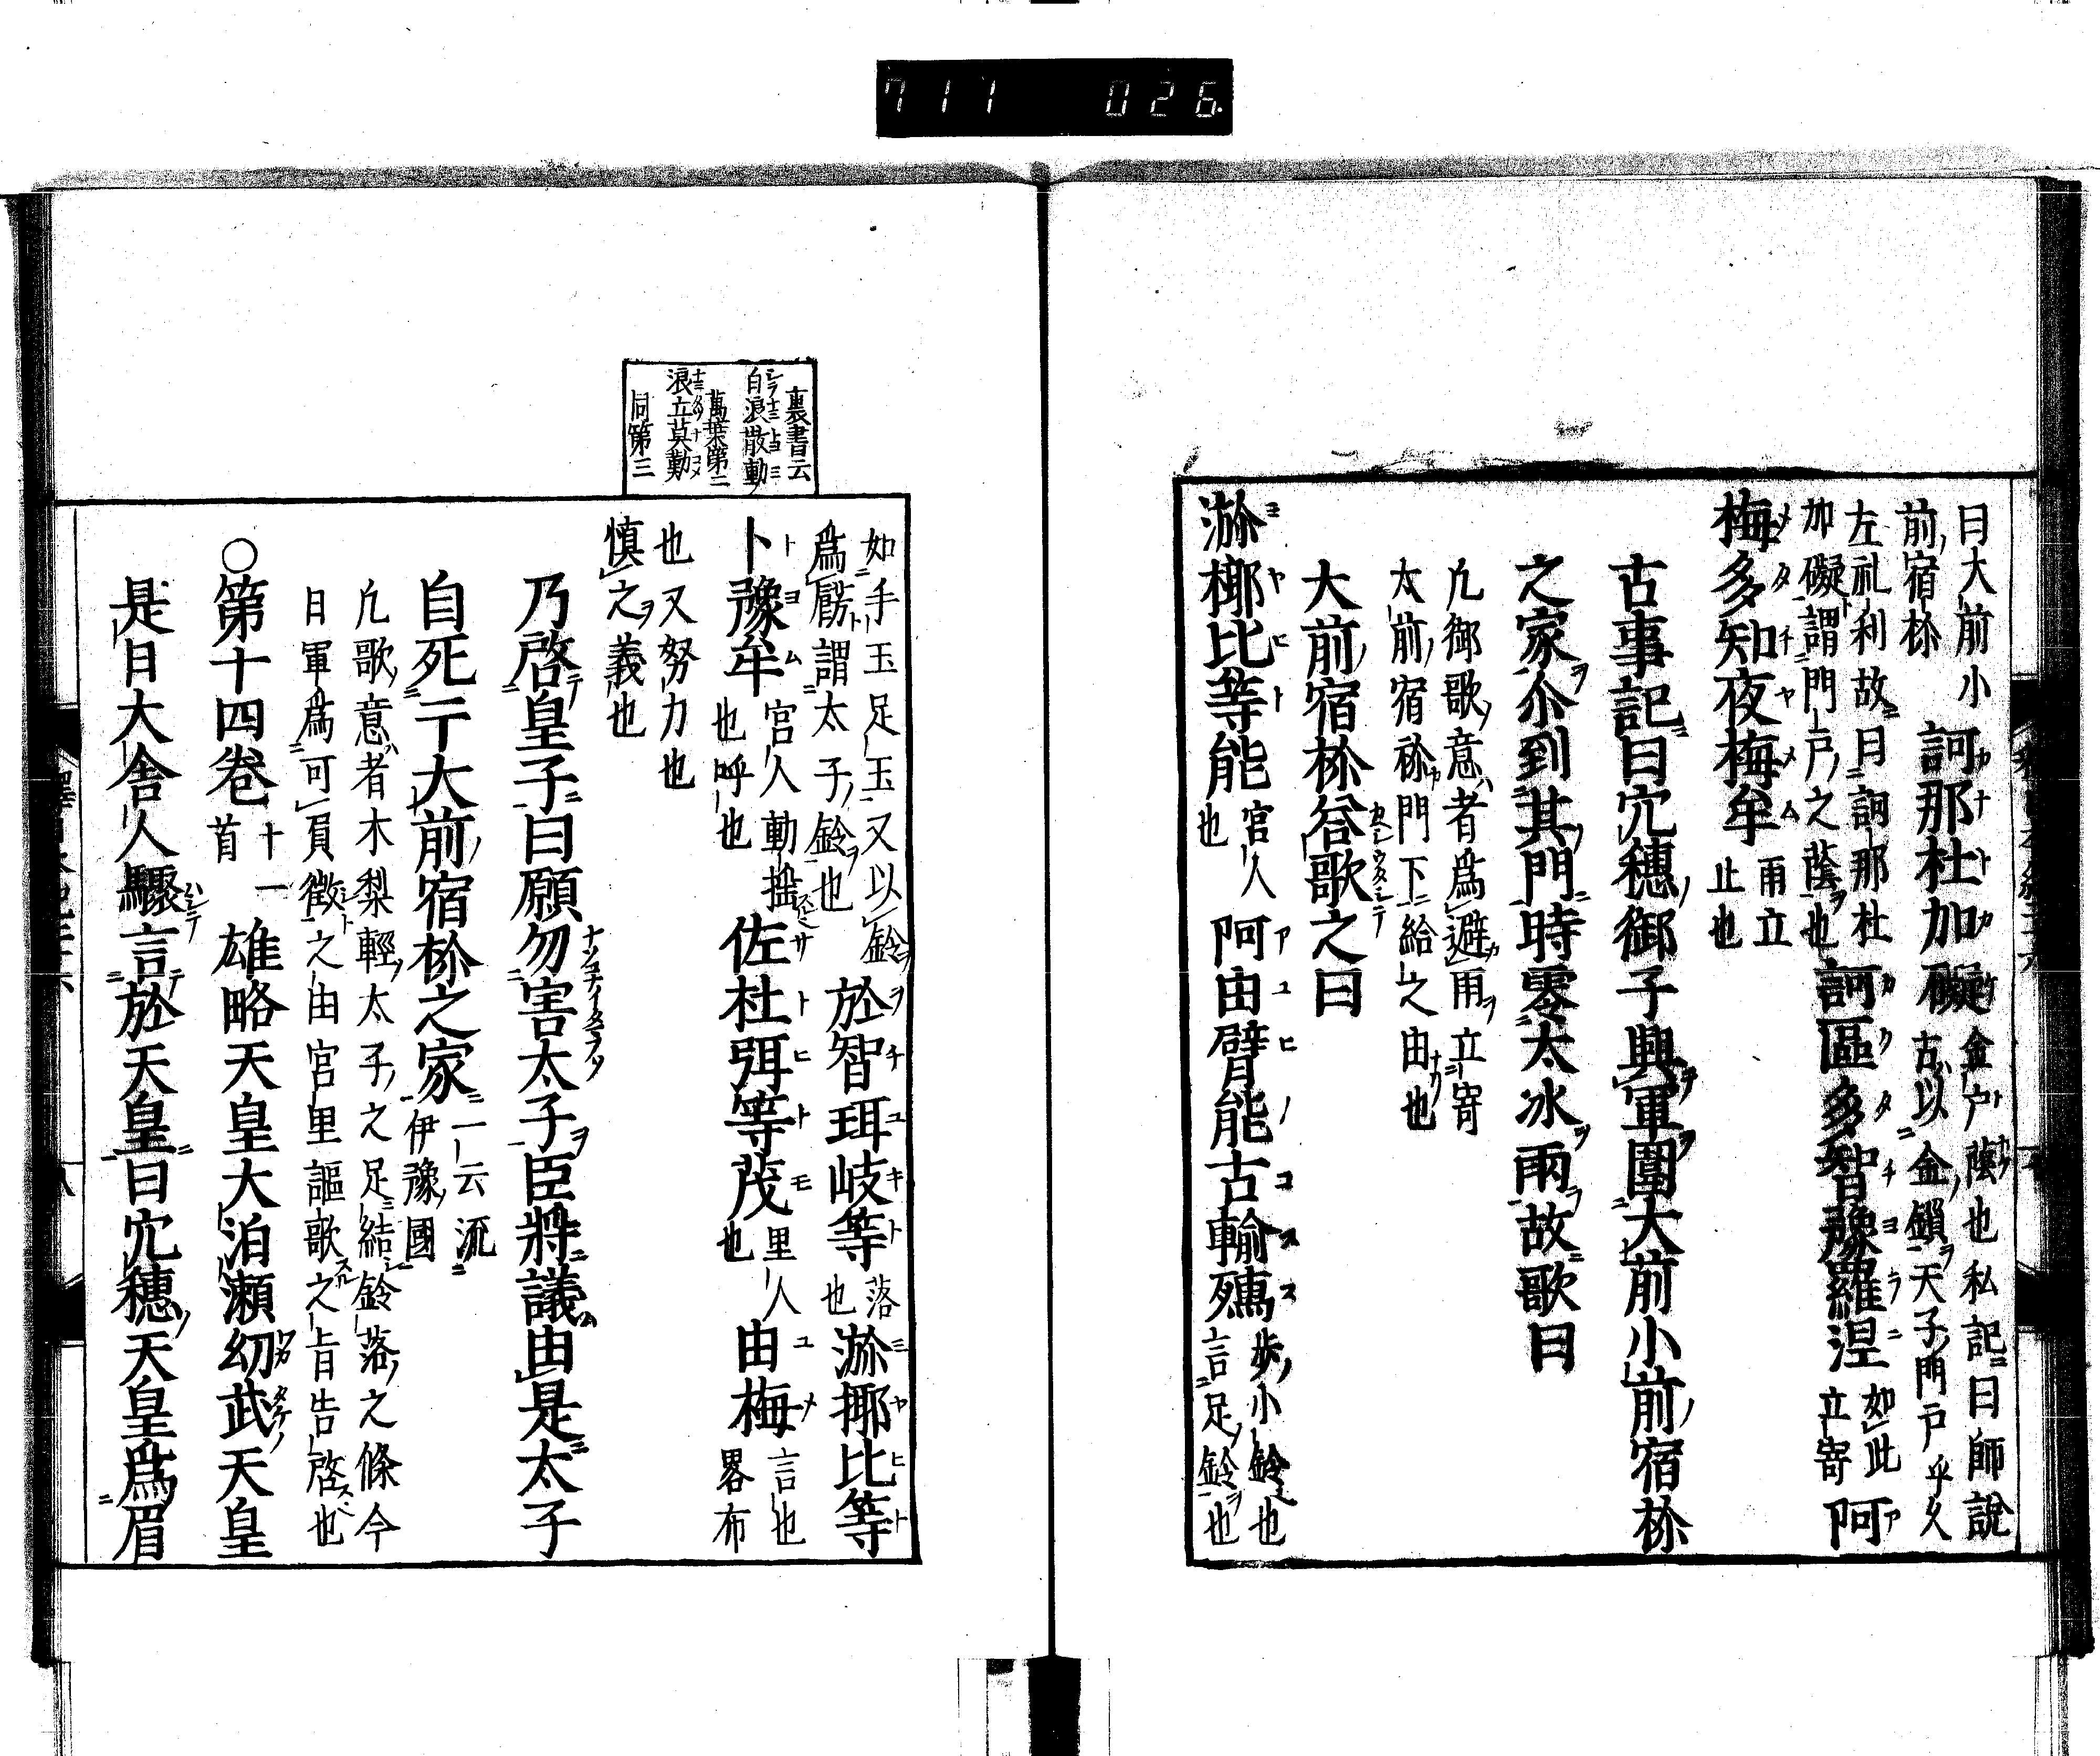 711 026.
目大前小
前宿祢
訶那杜加礙
金戸蔭也私記曰師說
古以金鎖天子門戸乎久
左礼利故曰訶那杜
加礙謂門戸之蔭也
訶區多智豫羅涅
如此
立寄
阿
梅多知夜梅牟
雨立
止也
古事記曰穴穗御子興軍圍大前小前宿祢
之家尒到其門時零大氷雨故歌曰
凢御歌意者爲避雨立寄
大前宿祢門下給之由也
大前宿祢答歌之曰
瀰椰比等能
宮人
也
阿由臂能古輸殤
歩小鈴也
言足鈴也
裏書云
白浪散動
萬葉第二
浪立莫勤
同第三
如手玉足玉又以鈴
爲餝謂太子鈴也
於智珥岐等
落
也
瀰揶比等
卜豫牟
宮人動揺
也呼也
佐杜弭等茂
里人
也
由梅
言也
畧布
也又努力也
慎之義也
乃啓皇子曰願勿害太子臣將議由是太子
自死于大前宿祢之家
一云流
伊豫國
凢歌意者木梨輕太子之足結鈴落之條今
日軍爲可員徵之由宮里謳歌之旨告啓也
○第十四卷
十一
首
雄略天皇大泊瀬幼武天皇
是日大舎人驟言於天皇曰穴穗天皇爲眉